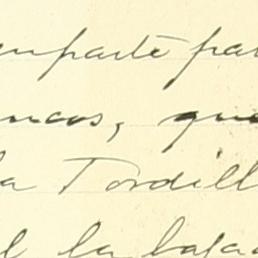 mparte par
ncos, que
la Tordill
el la bajad